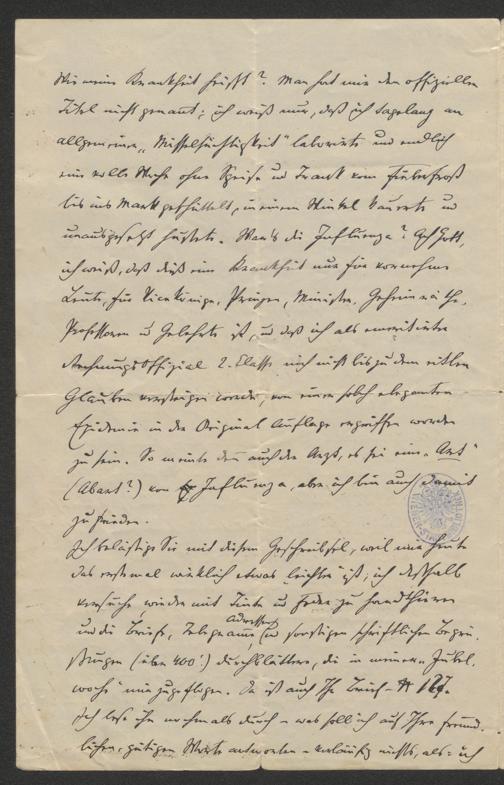 Wie meine Krankheit heißt? Man hat mir den offiziellen
Titel nicht genannt; ich weiß nur, daß ich tagelang an
allgemeiner „Misselsüchtigkeit" laborirte und endlich
eine volle Woche ohne Speise u Trank vom Fieberfrost
bis ins Mark geschüttelt, in einem Winkel kauerte u
unausgesetzt hustete. War's die Influenza? Ach Gott,
ich weiß, daß dieß eine Krankheit nur für vornehme
Leute, für Vicekönige, Prinzen, Minister, Geheimräthe,
Professoren u Gelehrte ist, u daß ich als emeritirter
Rechnungsoffizial 2. Classe mich nicht bis zu dem eitlen
Glauben versteigen werde, von einer solch eleganten
Epidemie in der Original Auflage ergriffen worden
zu sein. So meinte denn auch der Arzt, es sei eine „Art"
(Abart?) von Influenza, aber ich bin auch damit
zufrieden.
Ich belästige Sie mit diesem Geschreibsel, weil mir heute
das erstemal wirklich etwas leichter ist; ich deßhalb
versuche wieder mit Tinte u Feder zu handthieren
und die Briefe, Telegramme, Adressen u sonstigen schriftlichen Begrü-
ßungen (über 400!) durchblättere, die in meiner „Jubel-
woche" mir zugeflogen. Da ist auch Ihr Brief – № 127.
Ich lese ihn nochmals durch – was soll ich auf Ihre freund-
lichen, gütigen Worte antworten – vorläufig nichts, als: ich